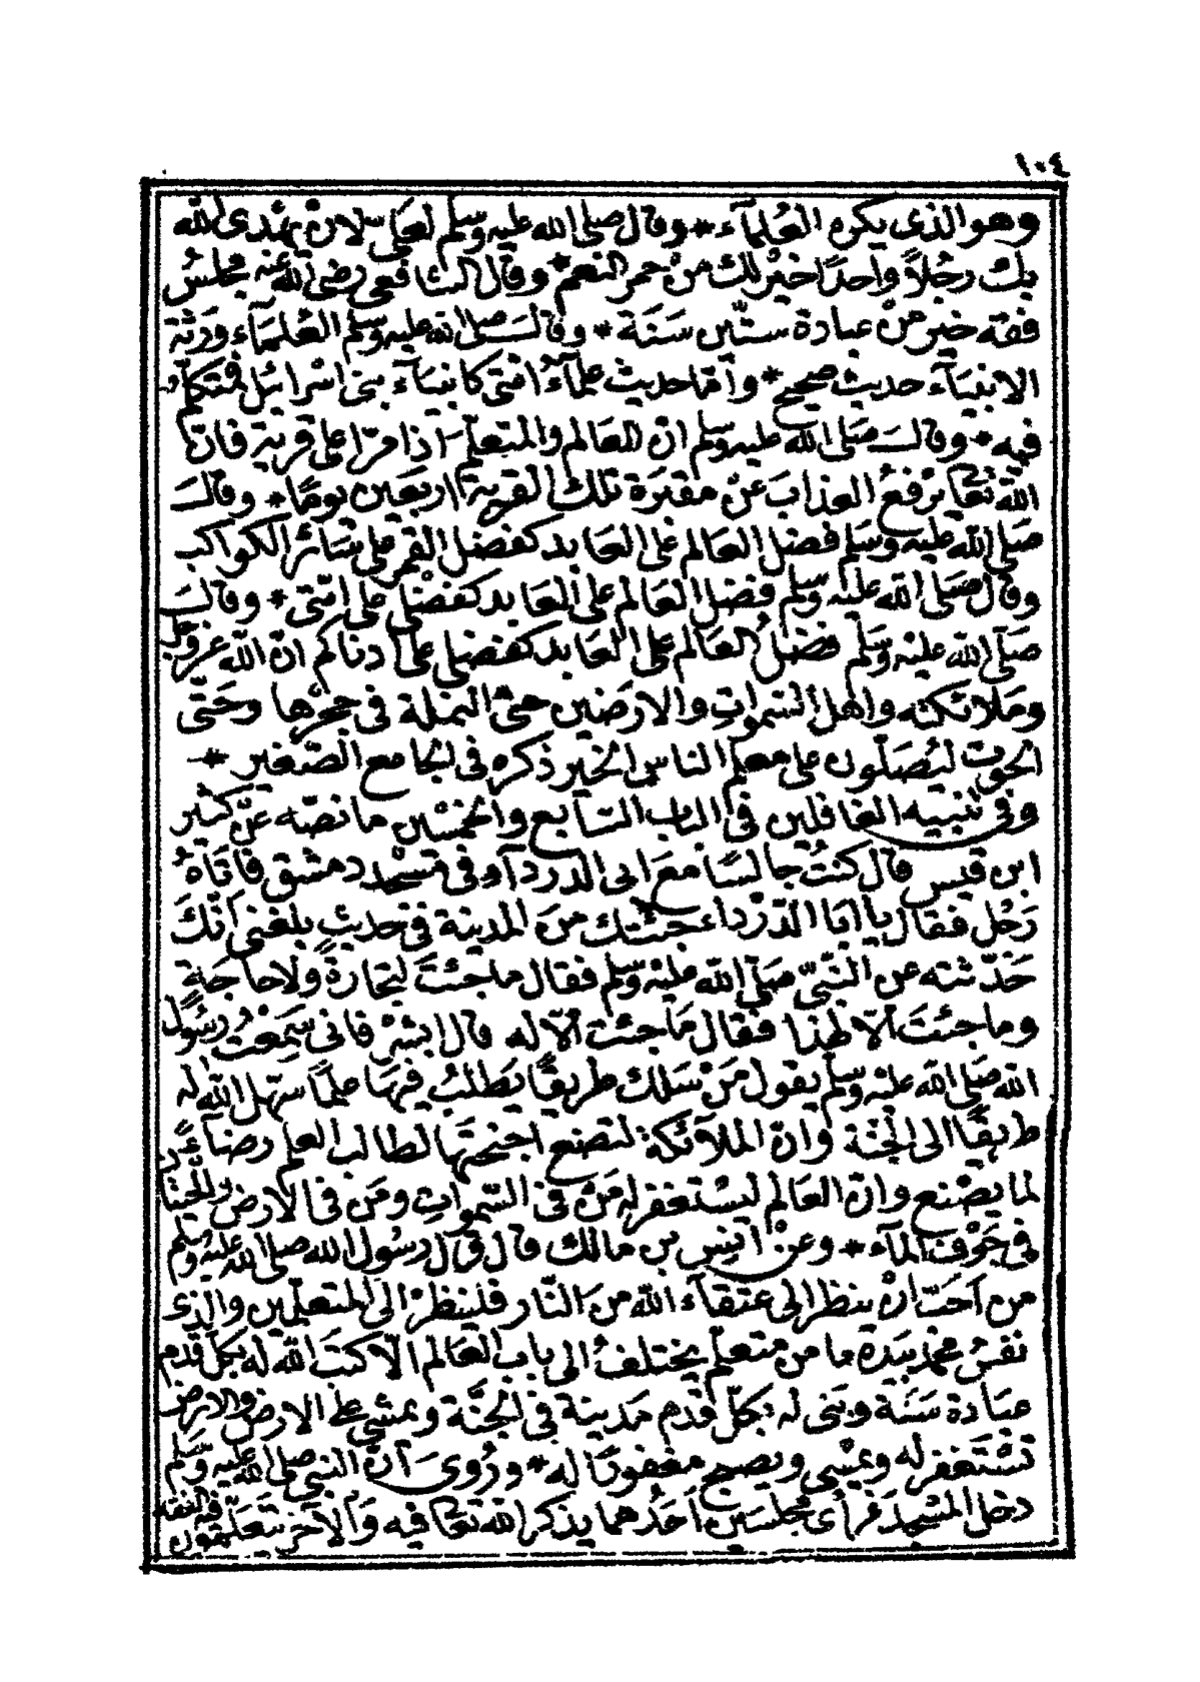 ١٠٤
وهو الذى يكره العُلمآء * وقال صلى الله عليه وسلم لعلى لان يهدى الله
بك رجُلاً واحدًا خير لك من حمر النعم * وقال الشافعى رضى الله عنه مجلسُ
فقه خير من عبادة ستّين سَنَة * وقالَ صلى الله عليه وسلم العُلمَاء ورثة
الانبيَاء حديث صحيح * وأمّا حديث علمآءُ امّتى كانبيَاء بنى اسرائيل فمتكلم
فيه * وقالَ صَلى الله عليه وسلم انّ العَالم والمتعلّم اذا مرّا على قرية فانّ
الله تعالى يرفعُ العذابَ عنْ مقبَرة تلك القرية اربَعين يومًا * وقالَ
صَلى الله عليه وسَلم فضل العَالم على العَابد كفضل القمر على سَائر الكواكب
وقال صَلى الله عليه وسلم فضل العَالم على العَابد كفضلى على امّتى * وقالَ
صَلى الله عليْه وسَلّم فضلُ العَالم على العَابد كفضلى على ادناكم انّ الله عز وجل
وَملائكته واهل السّموات والارَضين حتى النملة فى جحْرها وحَتّى
الحوت ليُصَلون على معلم الناس الخير ذكره فى الجامع الصّغير *
وفى تنبيه الغافلين فى الباب السّابع والخمسْين ما نصّه عنْ كثير
ابن قيس قال كنتُ جالسًا معَ ابى الدردآء فى مَسْجد دمشق فاتَاهُ
رَجُل فقال يا ابَا الدّرْداء جئتك منَ المدينة فى حديثٍ بلغنى أنّكَ
حَدّثته عن النَّبىّ صَلى الله عليْه وسلم فقال ما جئتَ لتجارةٍ ولا حاجَةٍ
وما جئتَ الّا لهذا فقال مَا جئت الّا له قال ابشرْ فانى سَمعتُ رسُول
الله صَلى الله عليْه وسلم يقول مَنْ سَلك طريقًا يَطلبُ فيهَا علمًا سهّل الله له
طريقًا الى الجنّة وانّ الملآئكة لتضع اجنحتهَا لطالب العلم رضآءً
لما يصْنع وانّ العَالم ليسْتغفر له مَنْ فى السّموات ومَن فى الارض والحيتان
فى جَوْف المآء * وعنْ أنسِ بن مالك قال قال رسُول الله صلى الله عليه وسَلم
من أحَبّ انْ ينظر الى عتقآء الله منَ النّار فلينظرْ الى المتعلمين والذى
نفسُ محمد بيَده ما من متعلّم يختلفُ الى باب العَالم الّا كتبَ الله له بكل قدم
عبَادة سَنَة وبَنى له بكلّ قدم مَدينة فى الجنَّة ويمشى على الارض والارض
تسْتَغفر له ويمسْى ويصبح مغفورًا له * ورُوىَ أنّ النبى صلى الله عليه وسَلم
دخل المسْجد فرأى مجلسَين أحَدُهما يذكر الله تعالى فيه وَالآخَر يتعَلّمون فيه الفقه